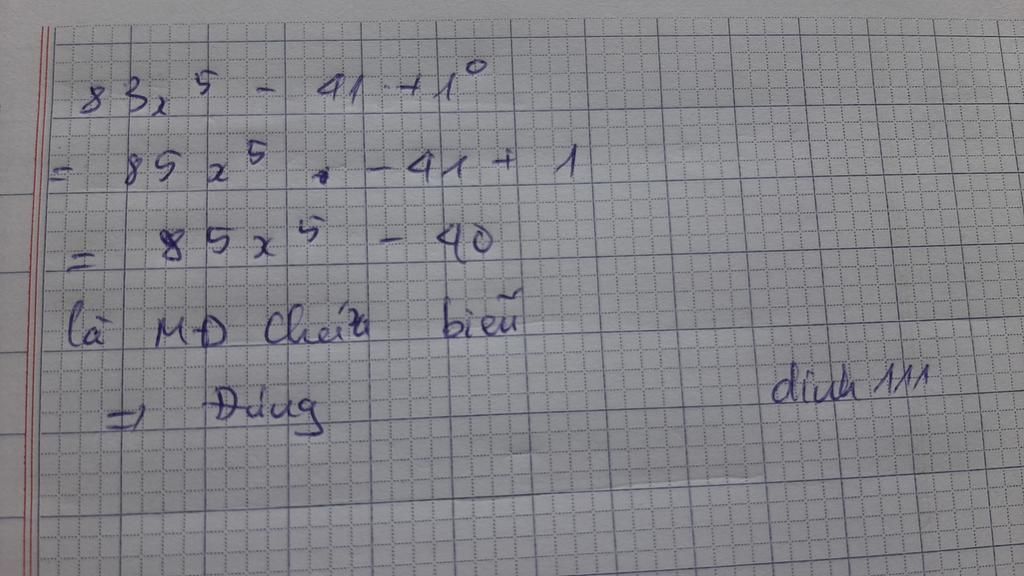 83x⁵ - 41 + 1⁰
= 85x⁵ . - 41 + 1
= 85x⁵ - 40
là MĐ chứa biến
=> Đúng
dinh 111